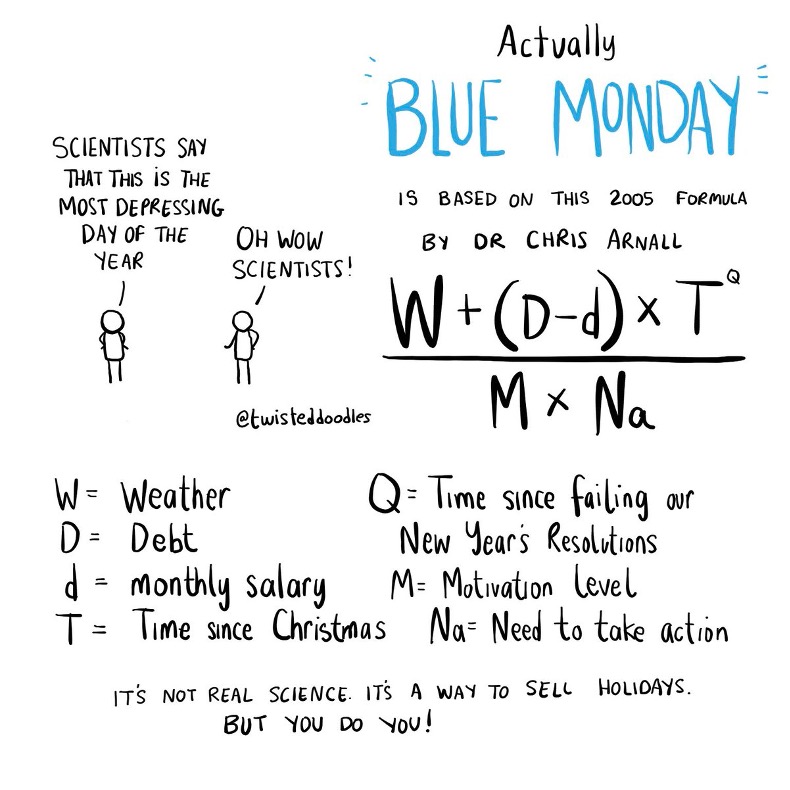 SCIENTISTS SAY
THAT THIS IS THE
MOST DEPRESSING
DAY OF THE
YEAR
OH WOW
SCIENTISTS!
@twisteddoodles
Actually
BLUE MONDAY
IS BASED ON THIS 2005 FORMULA
BY DR CHRIS ARNALL
W + (D-d) x T^Q
M x Na
W = Weather
D = Debt
d = monthly salary
T = Time since Christmas
Q = Time since failing our
New Year's Resolutions
M = Motivation level
Na = Need to take action
IT'S NOT REAL SCIENCE. IT'S A WAY TO SELL HOLIDAYS.
BUT YOU DO YOU!